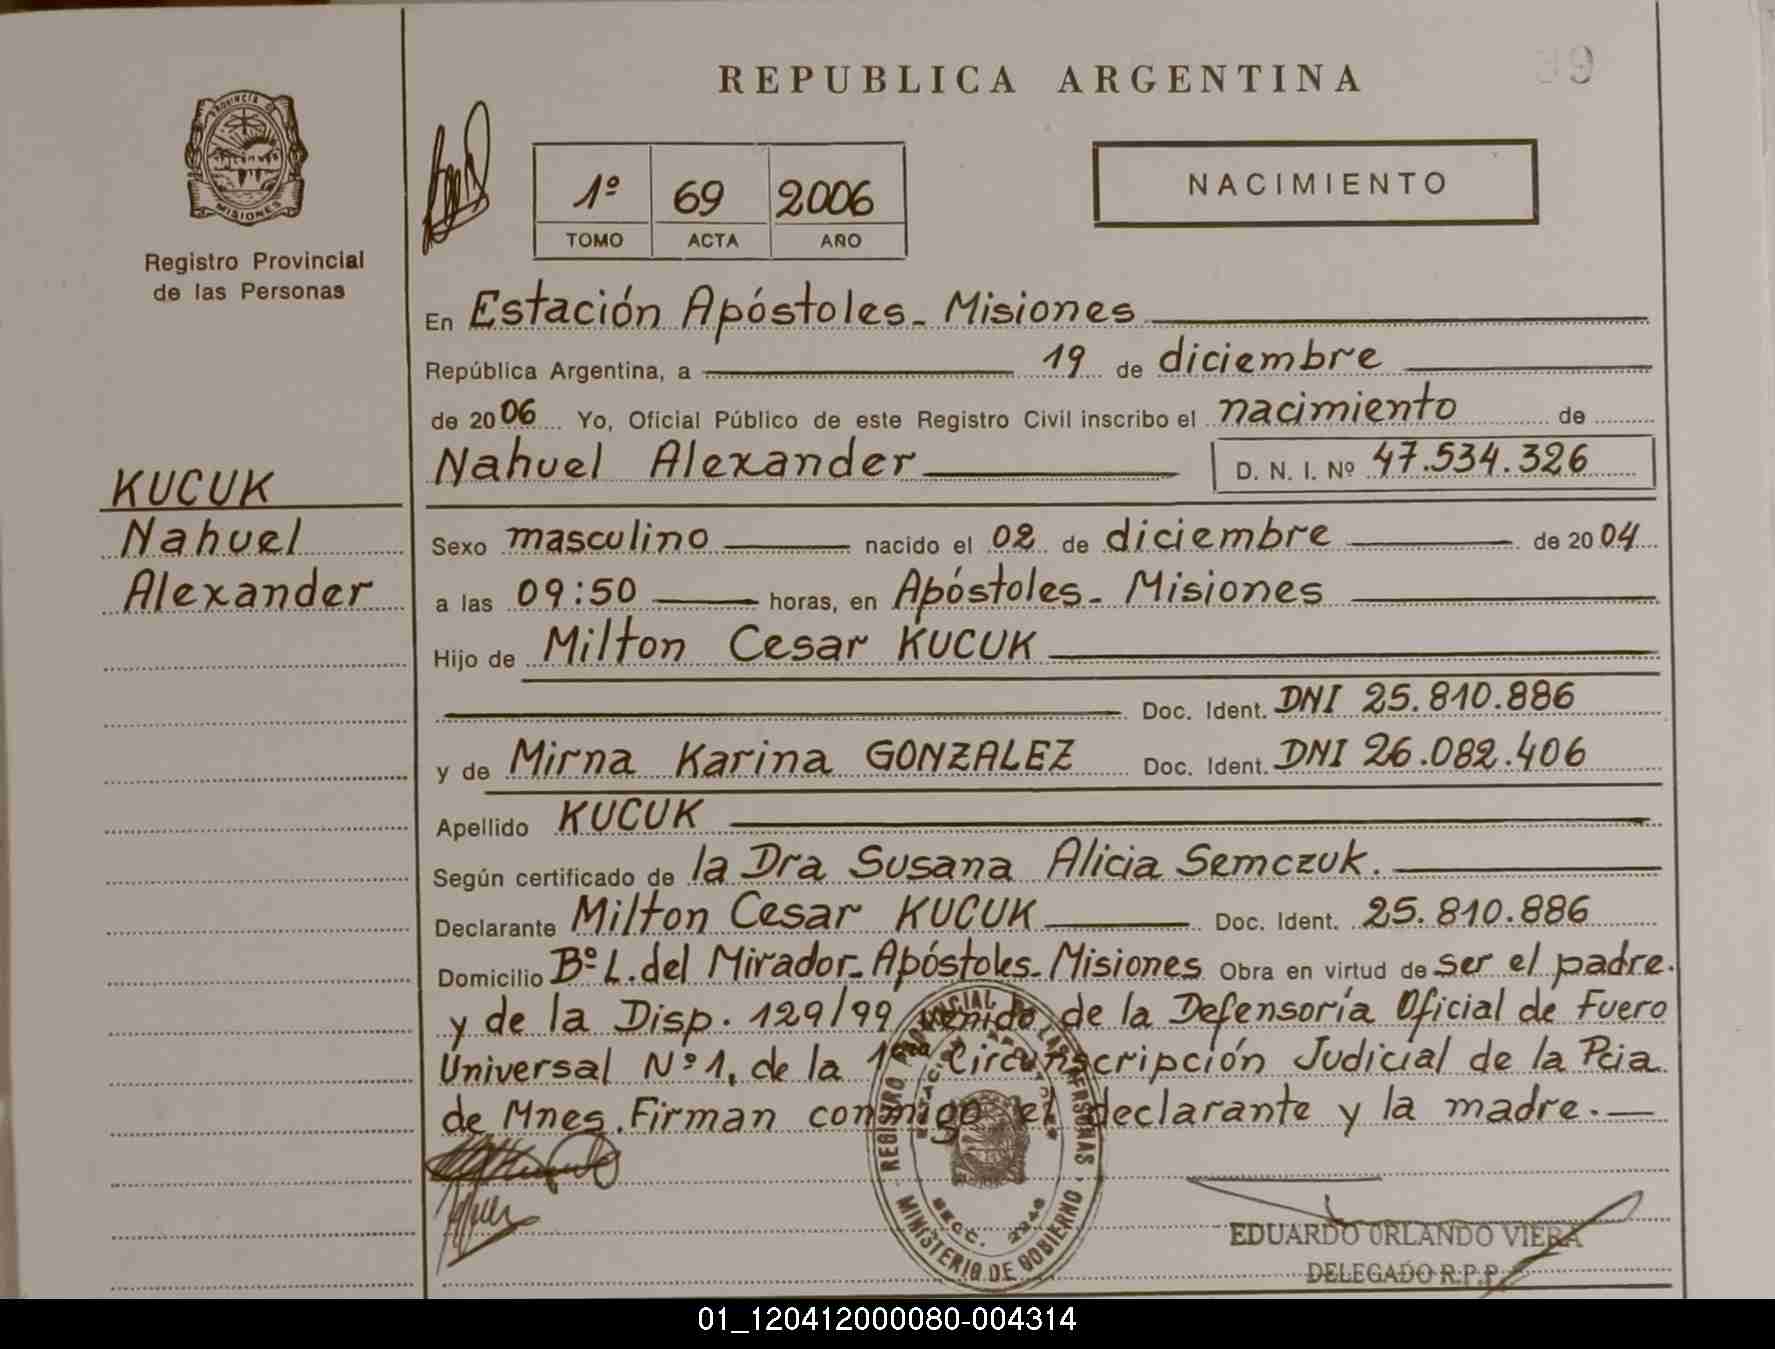 REPUBLICA ARGENTINA
PROVINCIA DE
MISIONES
Registro Provincial
de las Personas
1º 69 2006
TOMO ACTA AÑO
NACIMIENTO
En Estación Apóstoles - Misiones
República Argentina, a 19 de diciembre
de 2006 Yo, Oficial Público de este Registro Civil inscribo el nacimiento de
Nahuel Alexander D. N. I. Nº 47.534.326
KUCUK
Nahuel
Alexander
Sexo masculino nacido el 02 de diciembre de 2004
a las 09:50 horas, en Apóstoles - Misiones
Hijo de Milton Cesar KUCUK
Doc. Ident. DNI 25.810.886
y de Mirna Karina GONZALEZ Doc. Ident. DNI 26.082.406
Apellido KUCUK
Según certificado de la Dra Susana Alicia Semczuk.
Declarante Milton Cesar KUCUK Doc. Ident. 25.810.886
Domicilio Bº L. del Mirador - Apóstoles - Misiones Obra en virtud de ser el padre.
y de la Disp. 129/99 venido de la Defensoría Oficial de Fuero
Universal Nº 1, de la 1era Circunscripción Judicial de la Pcia
de Mnes. Firman conmigo el declarante y la madre.-
REGISTRO PROVINCIAL DE LAS PERSONAS
MINISTERIO DE GOBIERNO
EDUARDO ORLANDO VIERA
DELEGADO R.P.P.
01_120412000080-004314